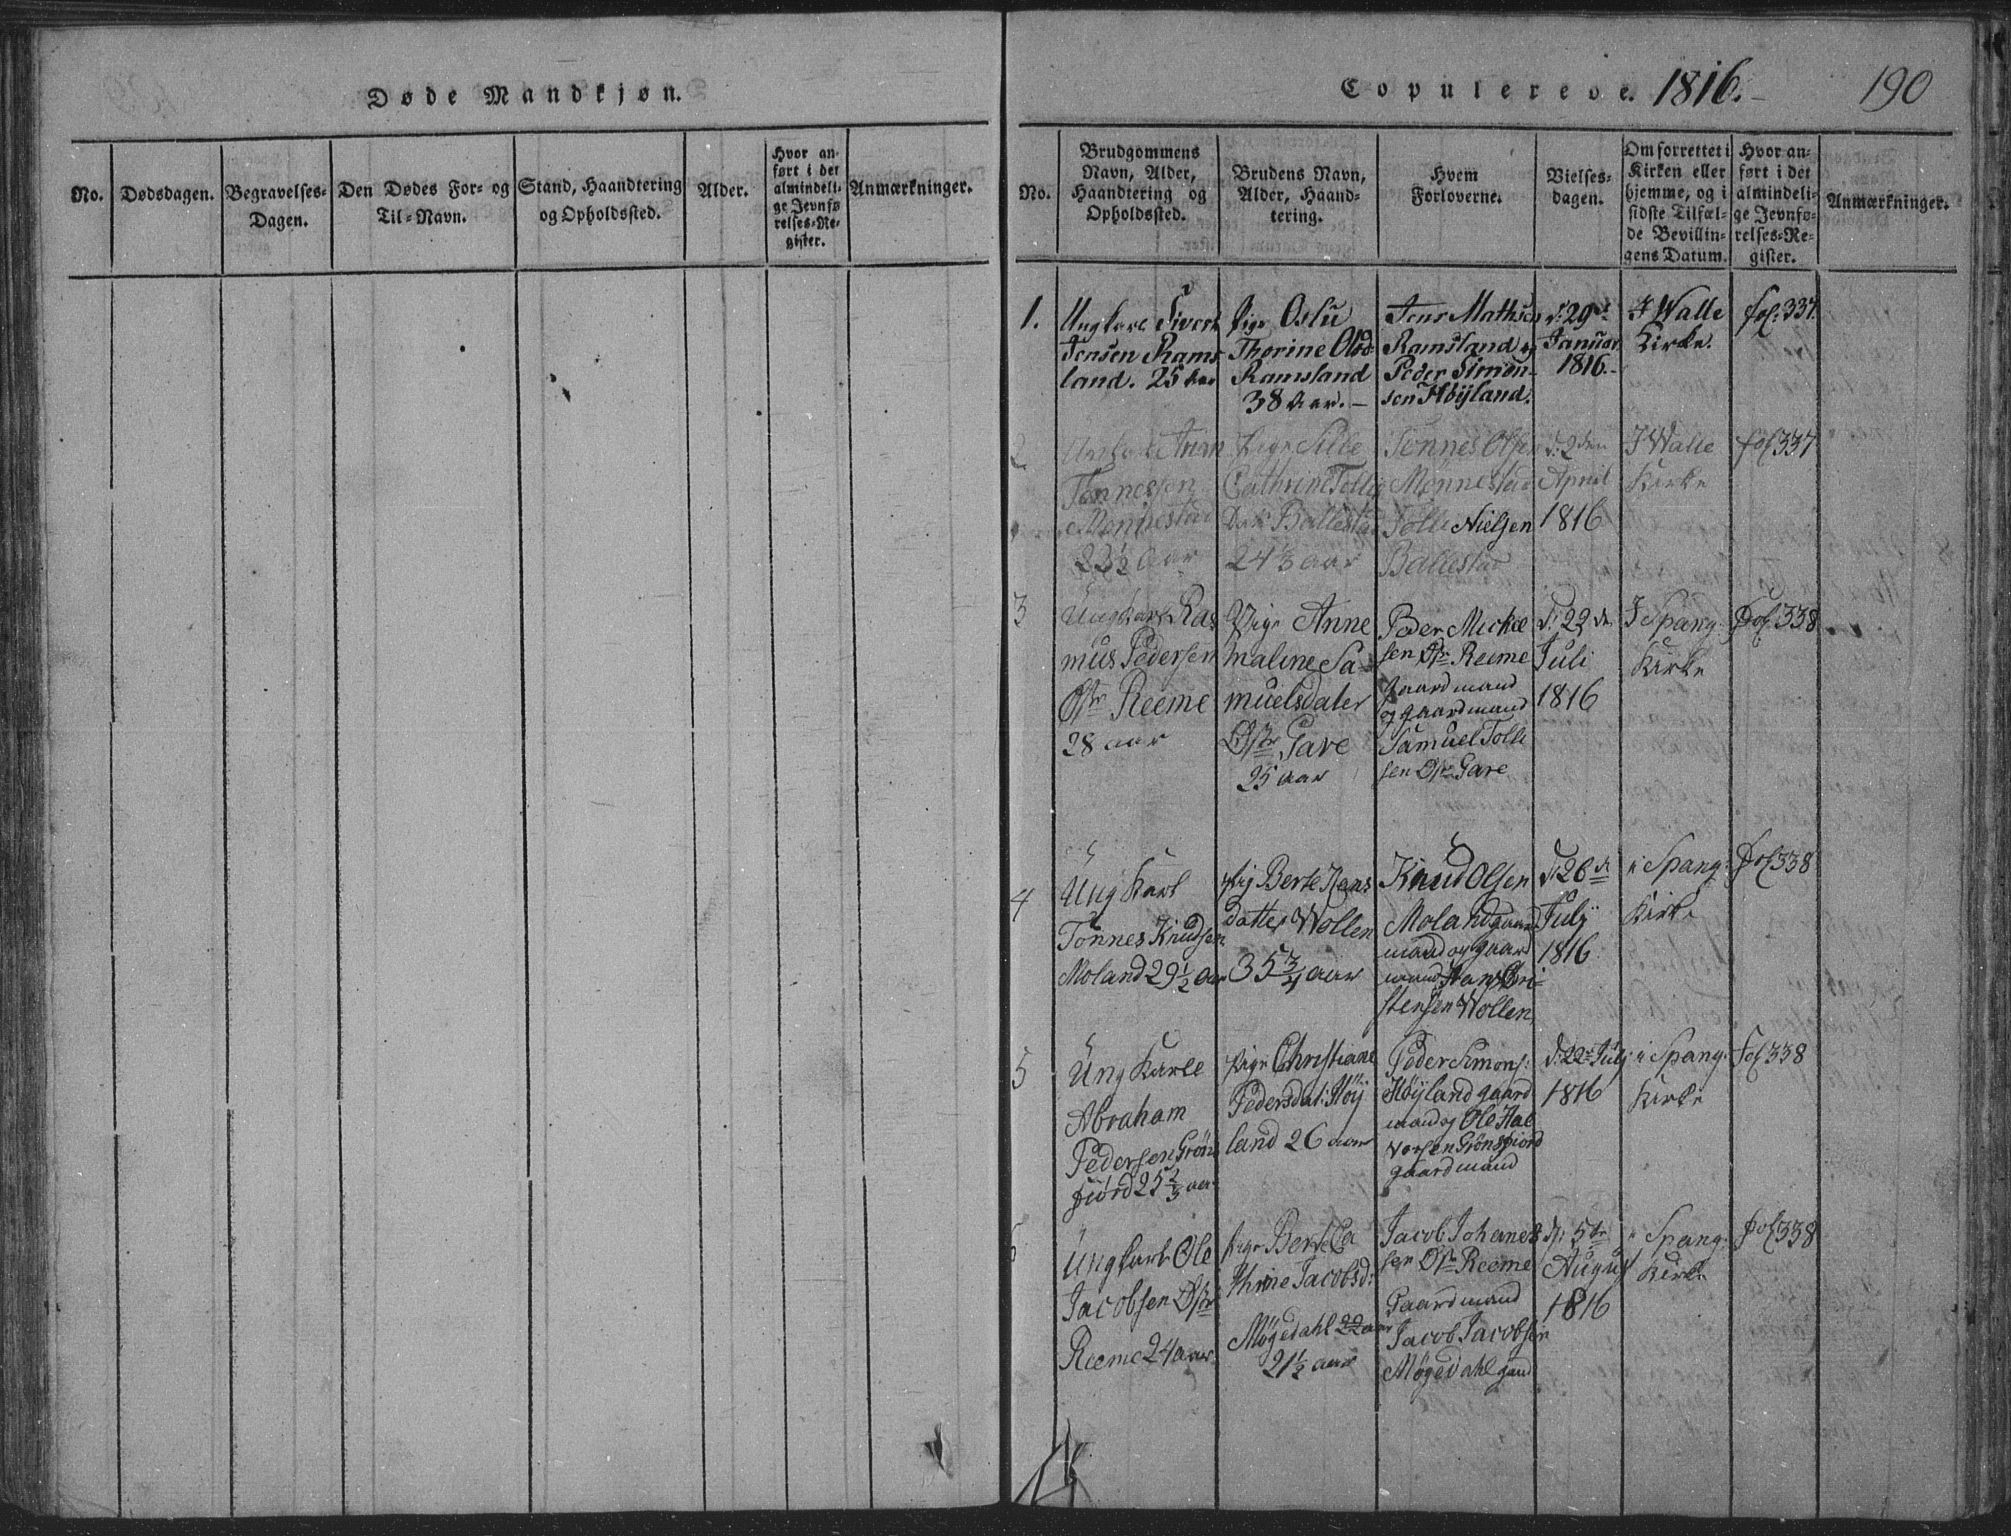 Døde Mandkjøn.
No.
Dødsdagen.
Begravelses-
Dagen.
Den Dødes For- og
Til-Navn.
Stand, Haandtering
og Opholdssted.
Alder.
Hvor an-
ført i det
almindeli-
ge Jevnfø
relses-Re-
gister.
Anmærkninger.
Copulerede. 1816.
190
No.
Brudgommens
Navn, Alder,
Haandtering og
Opholdssted.
Brudens Navn,
Alder, Haand-
tering.
Hvem
Forloverne.
Vielses-
dagen.
Om forrettet i
Kirken eller
hjemme, og i
sidste Tilfæl-
de Bevillin-
gens Datum.
Hvor an-
ført i det
almindeli-
ge Jevnfø-
relses-Re-
gister.
Anmærkninger.
1.
Ungkarl Sivert
Jensen Rams
land. 25 Aar
Pige Oslu
Thorine Olsd
Ramsland
38 Aar.
Jens Mathisen
Ramsland og
Peder Simon-
sen Høyland.
d: 29de
Januar
1816.
I Walle
Kirke.
fol: 337.
2
Ungkarl
Tønnessen
Mønnestad
23½ Aar
Pige Sille
Cathrine Tollis
Dat: Ballestad
24⅓ aar
Tønnes Olsen
Mønnestad
Tolle Nielsen
Ballestad
d: 2den
April
1816
I Walle
Kirke
fol 337
3
Ungkarl Ras
mus Pedersen
Østr Reeme
28 aar
Pige Anne
maline Sa
muelsdater
Østr Gare
25 aar
Peder Mickel
sen Østr Reeme
gaardmand
og gaardmand
Samuel Tolli
sen Østr Gare
d: 22de
Juli
1816
I Spang:
Kirke
Fol 338
4
Ung Karl
Tønnes Knudsen
Moland 29½ Aar
Pig Berte Hans
datter Wollen
35¾ aar
Knud Olsen
Moland gaard
mand og gaard
mand Hans Cri-
stensen Wollen
d: 26de
July
1816
i Spang:
Kirke
Fol 338
5
Ung Karl
Abraham
Pedersen Grøns
fiord 25⅔ aar
Pige Christiane
Pedersdat: Høy
land 26 aar
Peder Simons:
Høyland gaard
mand og Ole Hal
vorsen Grønsfiord
gaardmand
d: 22de July
1816
i Spang:
Kirke
Fol 338
6
Ungkarl Ole
Jacobsen Østr
Reeme 24 aar
Pige Berte Ca
thrine Jacobsd:
Møgedahl 22 aar
21½ aar
Jacob Johanes
sen Østr Reeme
Gaardmand
Jacob Jacobsen
Møgedahl gmd
d: 5te
August
1816
i Spang:
Kirke
Fol 338